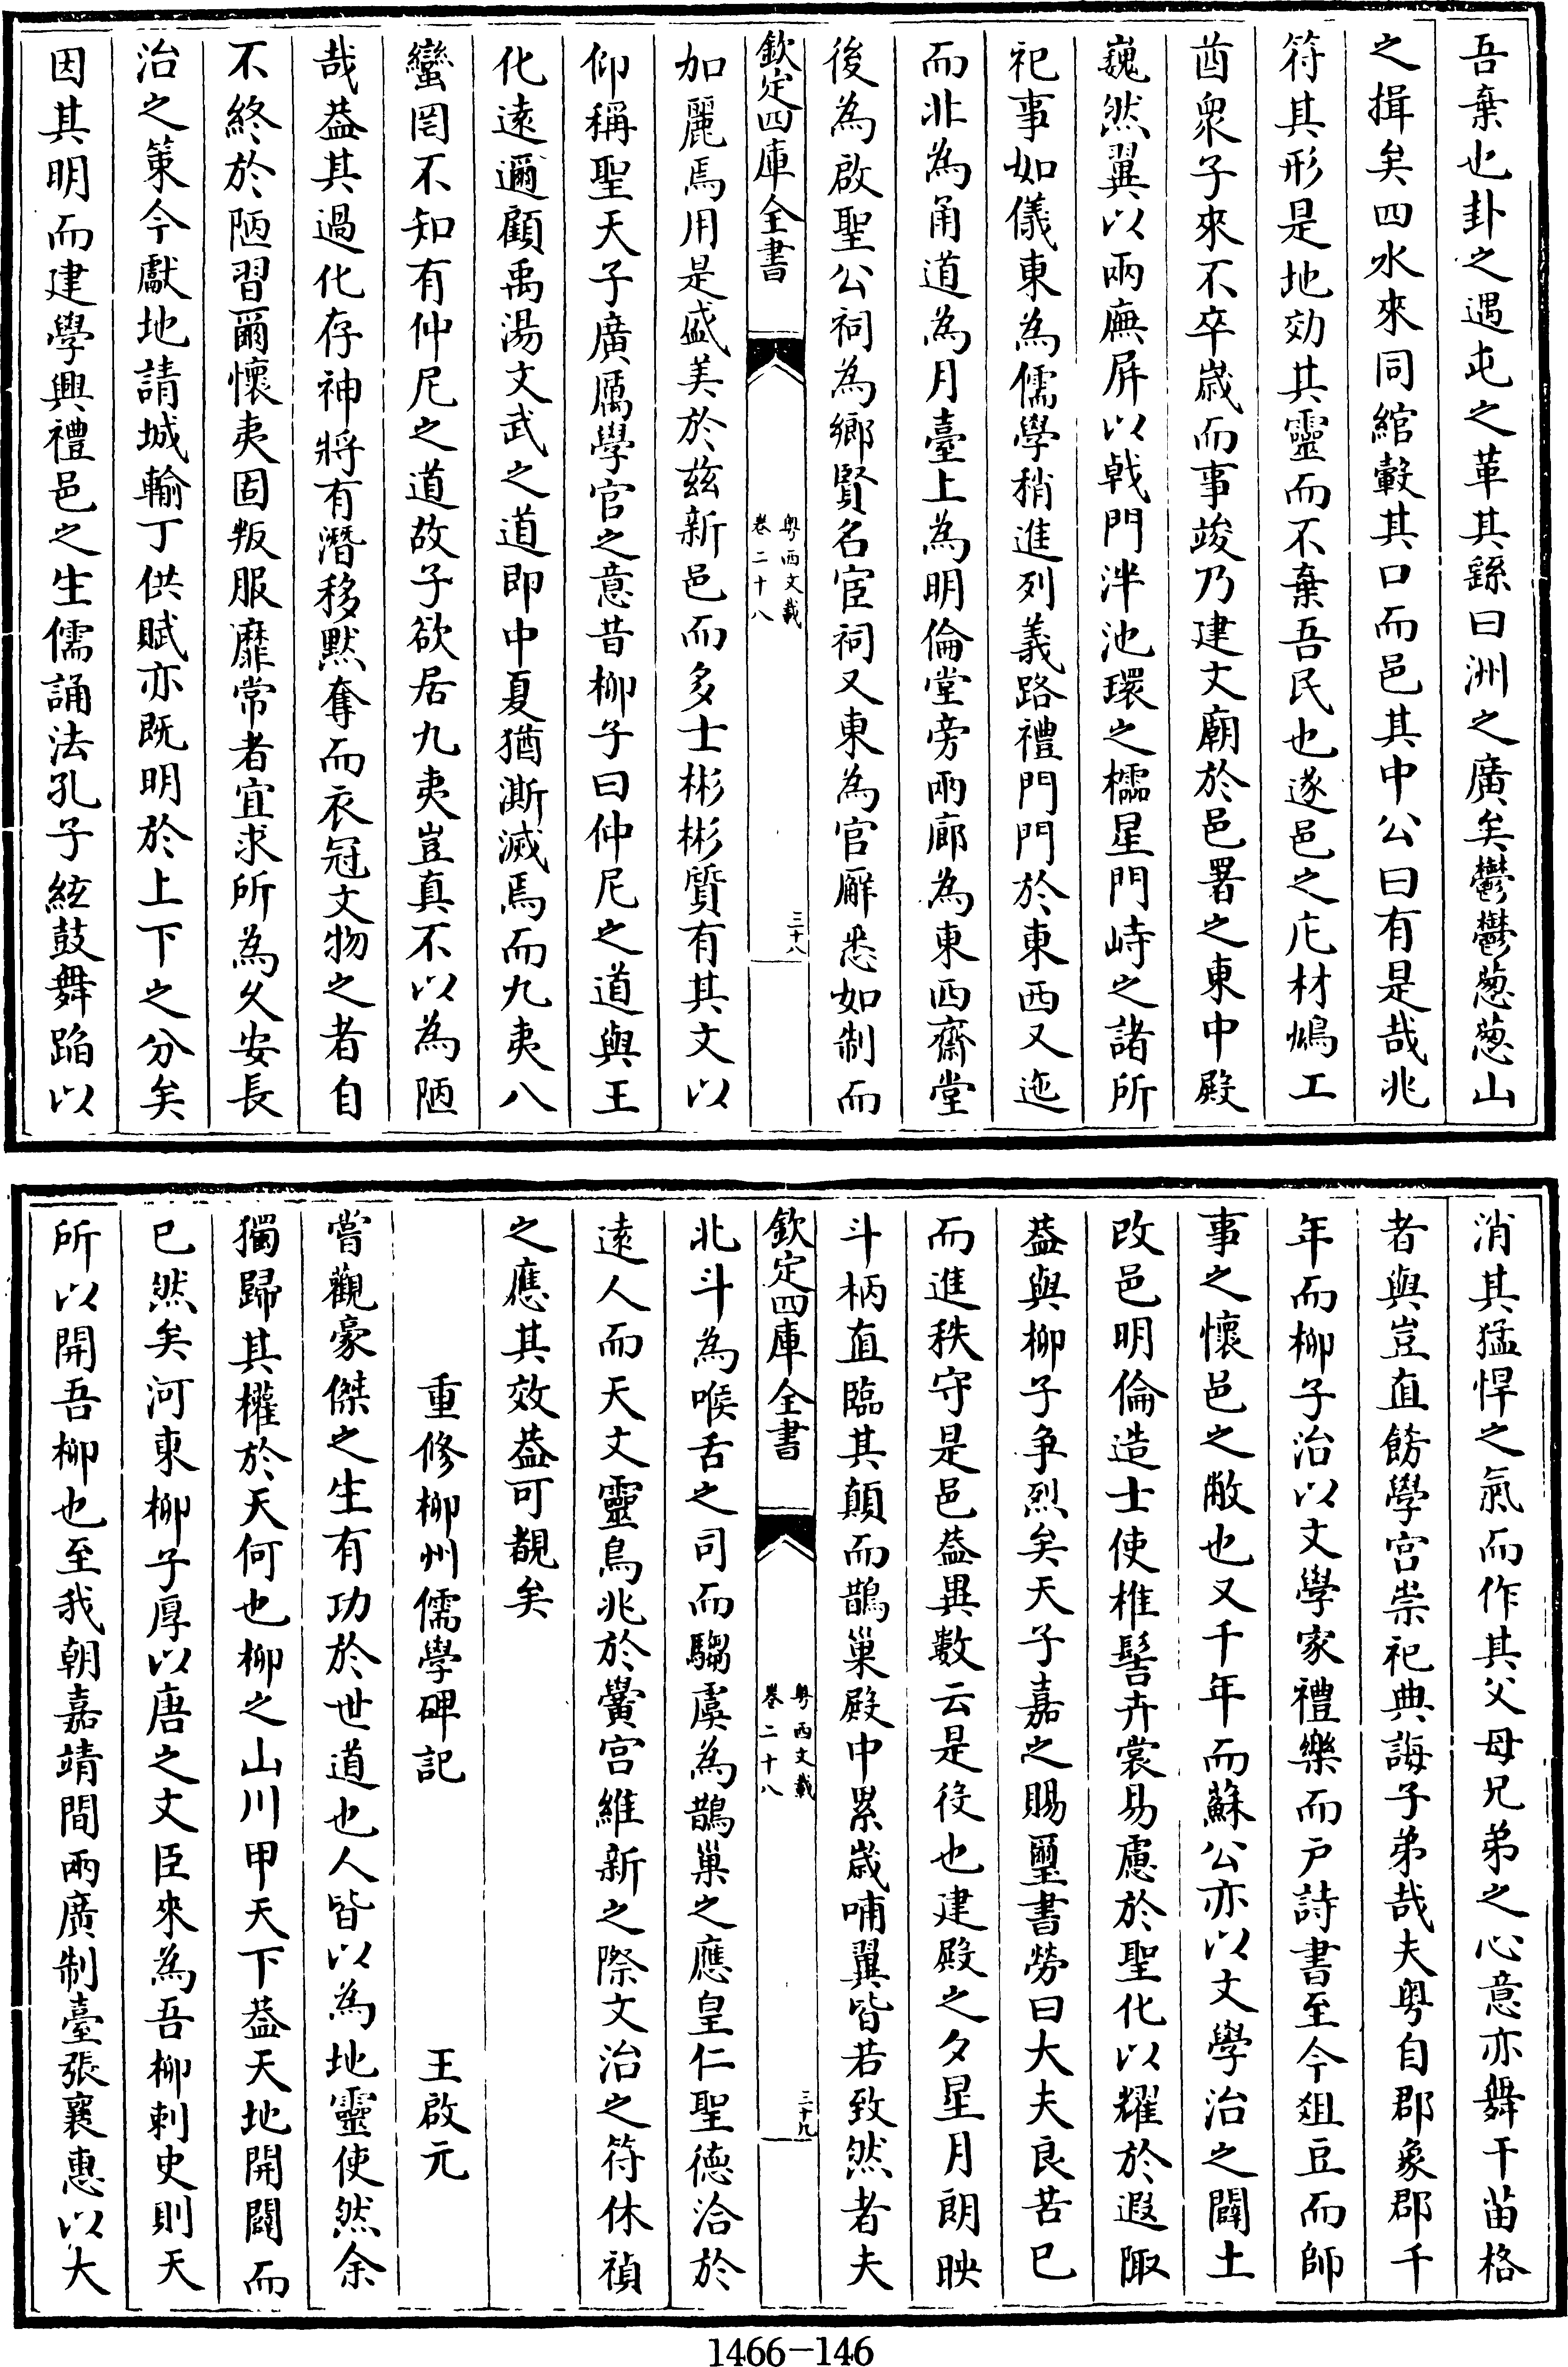 吾棄也卦之遇屯之革其繇曰洲之廣矣鬱鬱葱葱山
之揖矣四水來同綰轂其口而邑其中公曰有是哉兆
符其形是地効其靈而不棄吾民也遂邑之庀材鳩工
酋衆子來不卒歳而事竣乃建文廟於邑署之東中殿
巍然翼以兩廡屏以戟門泮池環之櫺星門峙之諸所
祀事如儀東為儒學稍進列義路禮門門於東西又迤
而北為甬道為月臺上為明倫堂旁兩廊為東西齋堂
後為啟聖公祠為鄉賢名宦祠又東為官廨悉如制而
欽定四庫全書
粤西文載
卷二十八
三十八
加麗焉用是盛美於兹新邑而多士彬彬質有其文以
仰稱聖天子廣厲學官之意昔柳子曰仲尼之道與王
化遠邇顧禹湯文武之道即中夏猶澌滅焉而九夷八
蠻罔不知有仲尼之道故子欲居九夷豈真不以為陋
哉葢其過化存神將有潛移黙奪而衣冠文物之者自
不終於陋習爾懷夷固叛服靡常者宜求所為久安長
治之策今獻地請城輸丁供賦亦既明於上下之分矣
因其明而建學興禮邑之生儒誦法孔子絃鼓舞蹈以
消其猛悍之氣而作其父母兄弟之心意亦舞干苗格
者與豈直餝學宫崇祀典誨子弟哉夫粤自郡象郡千
年而柳子治以文學家禮樂而戸詩書至今俎豆而師
事之懷邑之敝也又千年而蘇公亦以文學治之闢土
改邑明倫造士使椎髻卉裳易慮於聖化以耀於遐陬
葢與柳子争烈矣天子嘉之賜璽書勞曰大夫良苦已
而進秩守是邑葢異數云是役也建殿之夕星月朗映
斗柄直臨其顛而鵲巢殿中累歳哺翼皆若致然者夫
欽定四庫全書
粤西文載
卷二十八
三十九
北斗為喉舌之司而騶虞為鵲巢之應皇仁聖德洽於
遠人而天文靈鳥兆於黌宫維新之際文治之符休禎
之應其效葢可覩矣
重修柳州儒學碑記
王啟元
嘗觀豪傑之生有功於世道也人皆以為地靈使然余
獨歸其權於天何也柳之山川甲天下葢天地開闢而
已然矣河東柳子厚以唐之文臣來為吾柳刺史則天
所以開吾柳也至我朝嘉靖間兩廣制臺張襄惠以大
1466-146